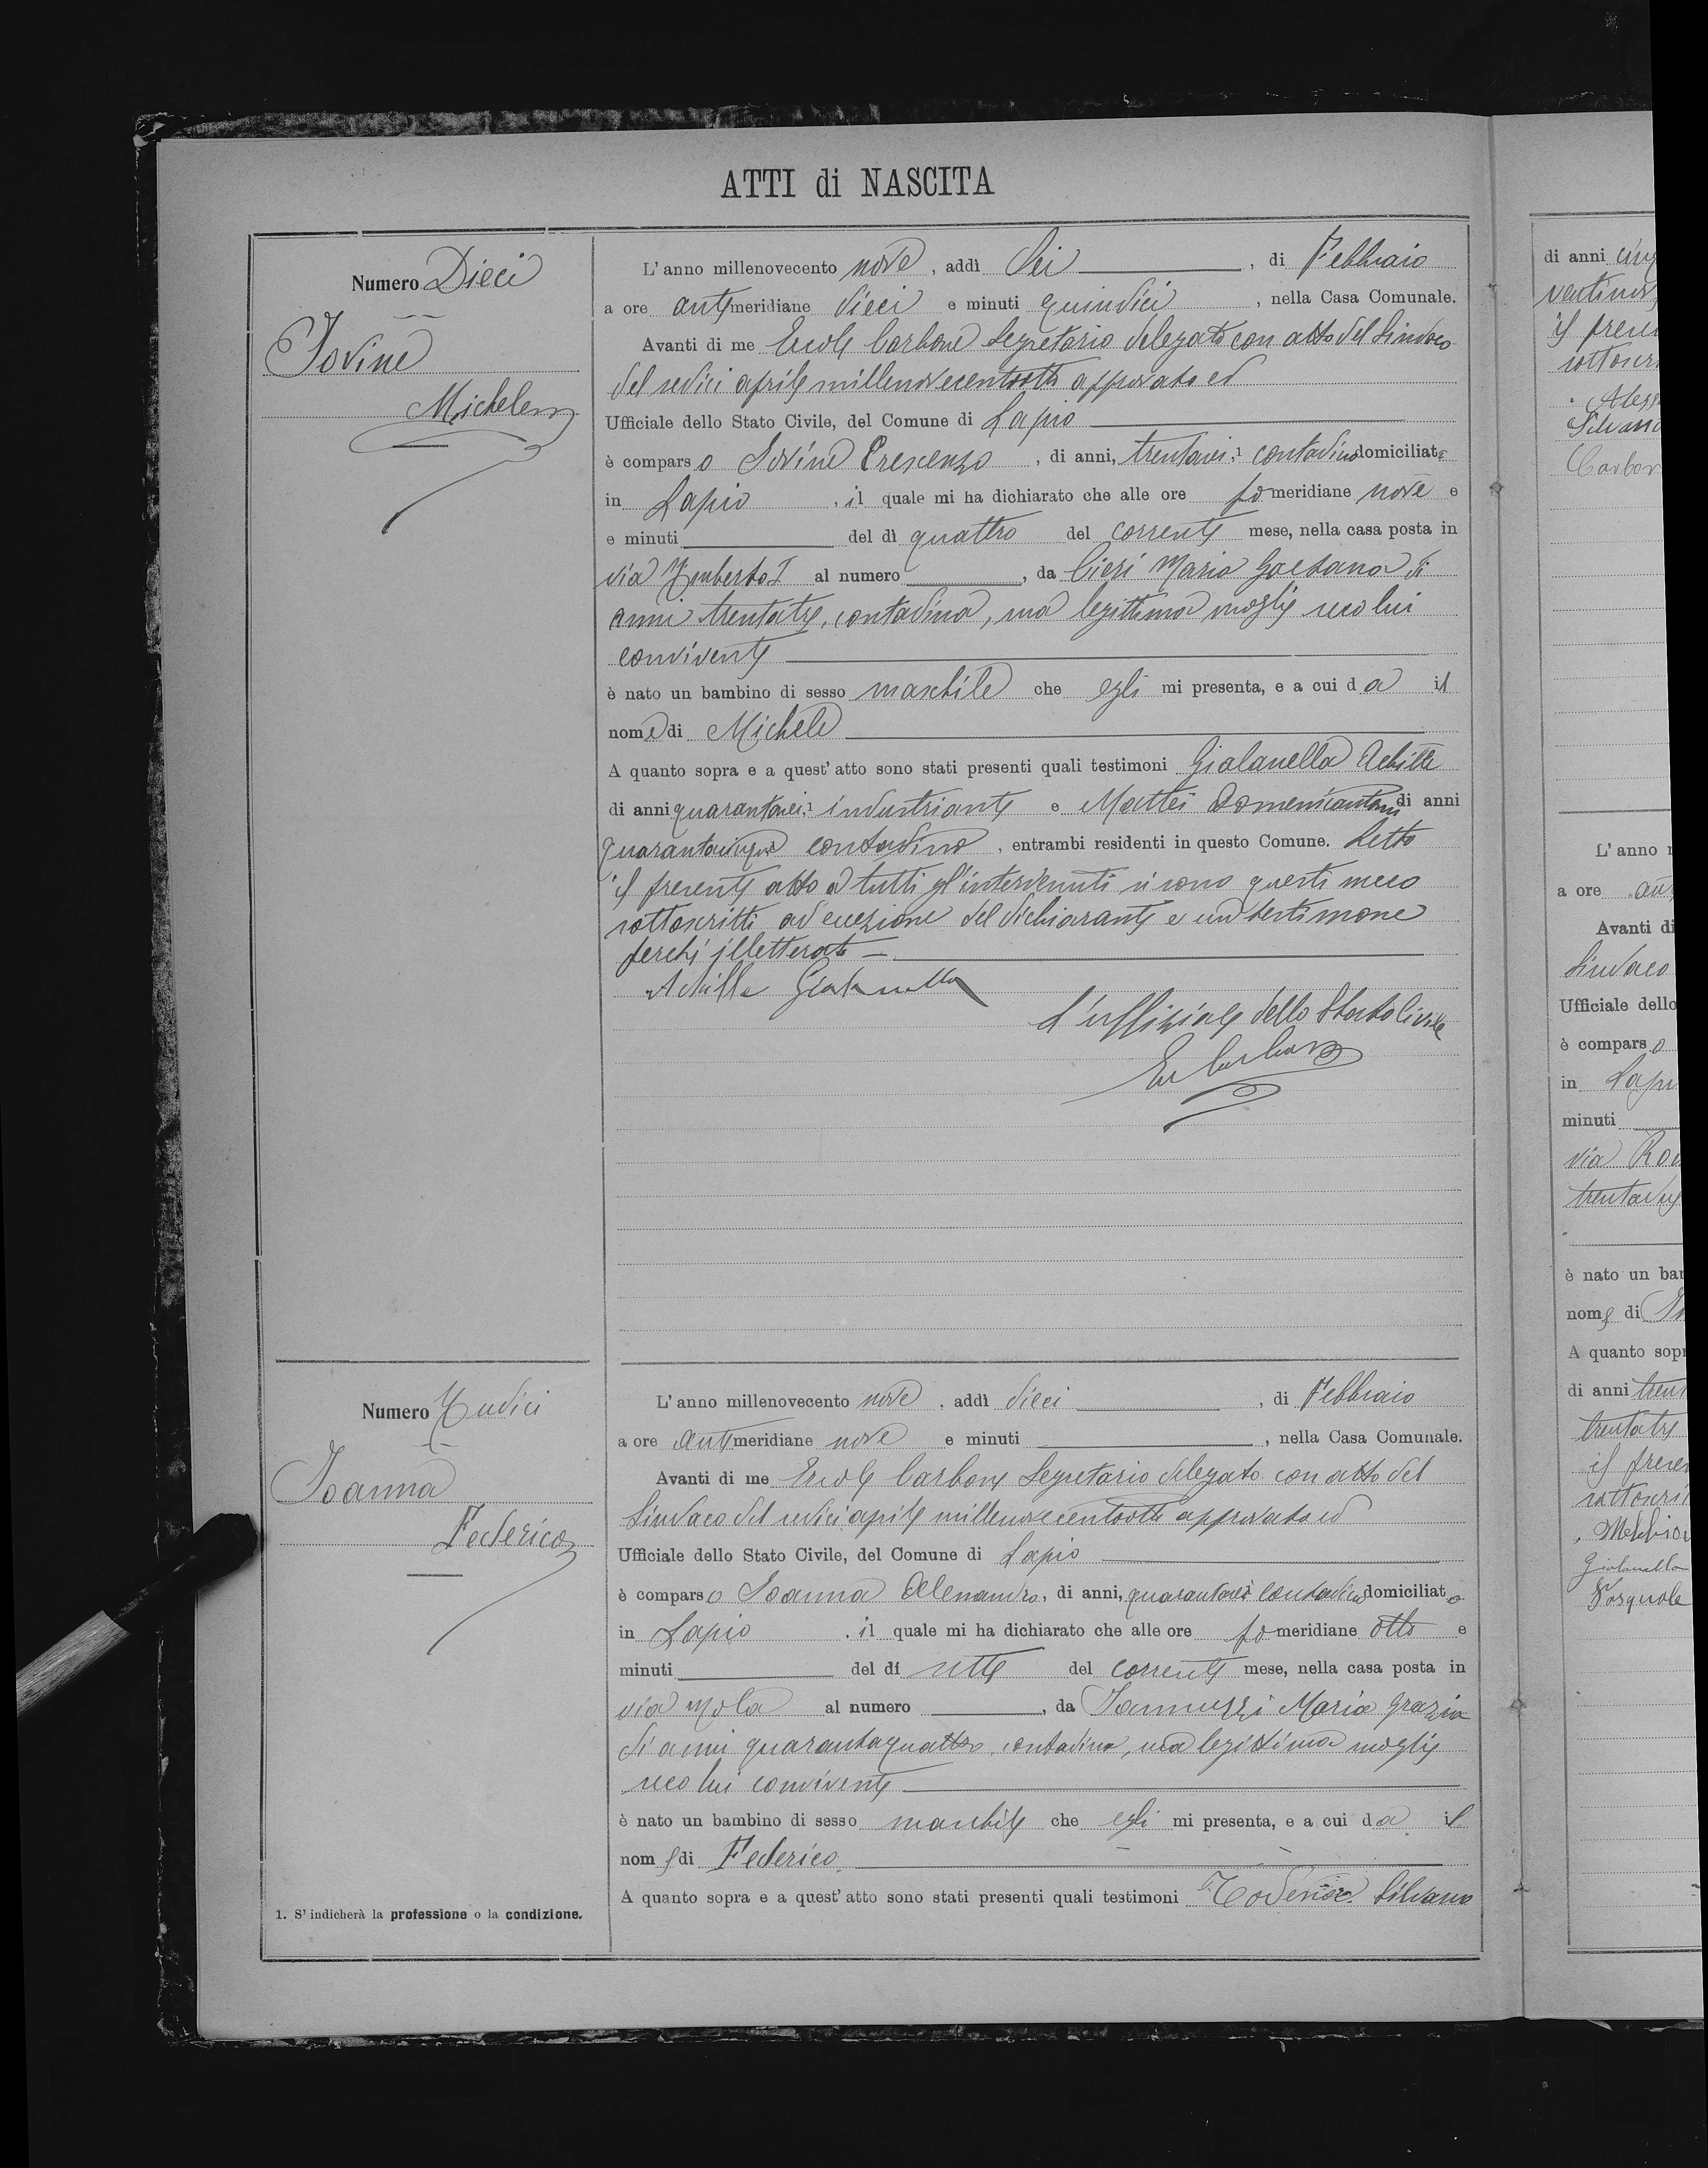 ATTI di NASCITA
Numero Dieci
Iovine
Michele
L'anno millenovecento nove, addì Sei, di Febbraio
a ore antimeridiane dieci e minuti quindici, nella Casa Comunale.
Avanti di me Ercole Carbone Segretario delegato con atto del Sindaco
del sedici aprile millenovecentootto approvato ed
Ufficiale dello Stato Civile, del Comune di Lapio
è comparso Iovine Crescenzo, di anni, trentasei, contadino domiciliato
in Lapio, il quale mi ha dichiarato che alle ore pomeridiane nove e
e minuti del dì quattro del corrente mese, nella casa posta in
via Umberto I al numero, da Cieri Maria Gaetana di
anni trentatre, contadina, sua legittima moglie seco lui
convivente
è nato un bambino di sesso maschile che egli mi presenta, e a cui da il
nome di Michele
A quanto sopra e a quest'atto sono stati presenti quali testimoni Gialanella Achille
di anni quarantasei, industriante e Mattei Domenicantonio di anni
quarantacinque contadino, entrambi residenti in questo Comune. Letto
il presente atto a tutti gl'intervenuti si sono questi meco
sottoscritti ad eccezione del dichiarante e un testimone
perchè illetterati
Achille Gialanella
L'uffiziale dello Stato Civile
E. Carbone
Numero Undici
Ioanna
Federico
L'anno millenovecento nove, addì dieci, di Febbraio
a ore antimeridiane nove e minuti, nella Casa Comunale.
Avanti di me Ercole Carbone Segretario delegato con atto del
Sindaco del sedici aprile millenovecentootto approvato ed
Ufficiale dello Stato Civile, del Comune di Lapio
è comparso Ioanna Alessandro, di anni, quarantasei contadino domiciliato
in Lapio, il quale mi ha dichiarato che alle ore pomeridiane otto e
minuti del dì sette del corrente mese, nella casa posta in
via Mola al numero, da Iannuzzi Maria Grazia
di anni quarantaquattro, contadina, sua legittima moglie
seco lui convivente
è nato un bambino di sesso maschile che egli mi presenta, e a cui da il
nome di Federico
A quanto sopra e a quest'atto sono stati presenti quali testimoni Silvano
1. S'indicherà la professione o la condizione.
di anni
il
L'anno
a ore
Avanti di
Sindaco
Ufficiale dello
è comparso
in
minuti
via
è nato un
nome di
A quanto
di anni
trentatre
il
Pasquale